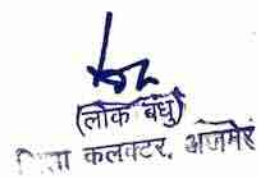 (लोक बंधु)
कलक्टर, अजमेर